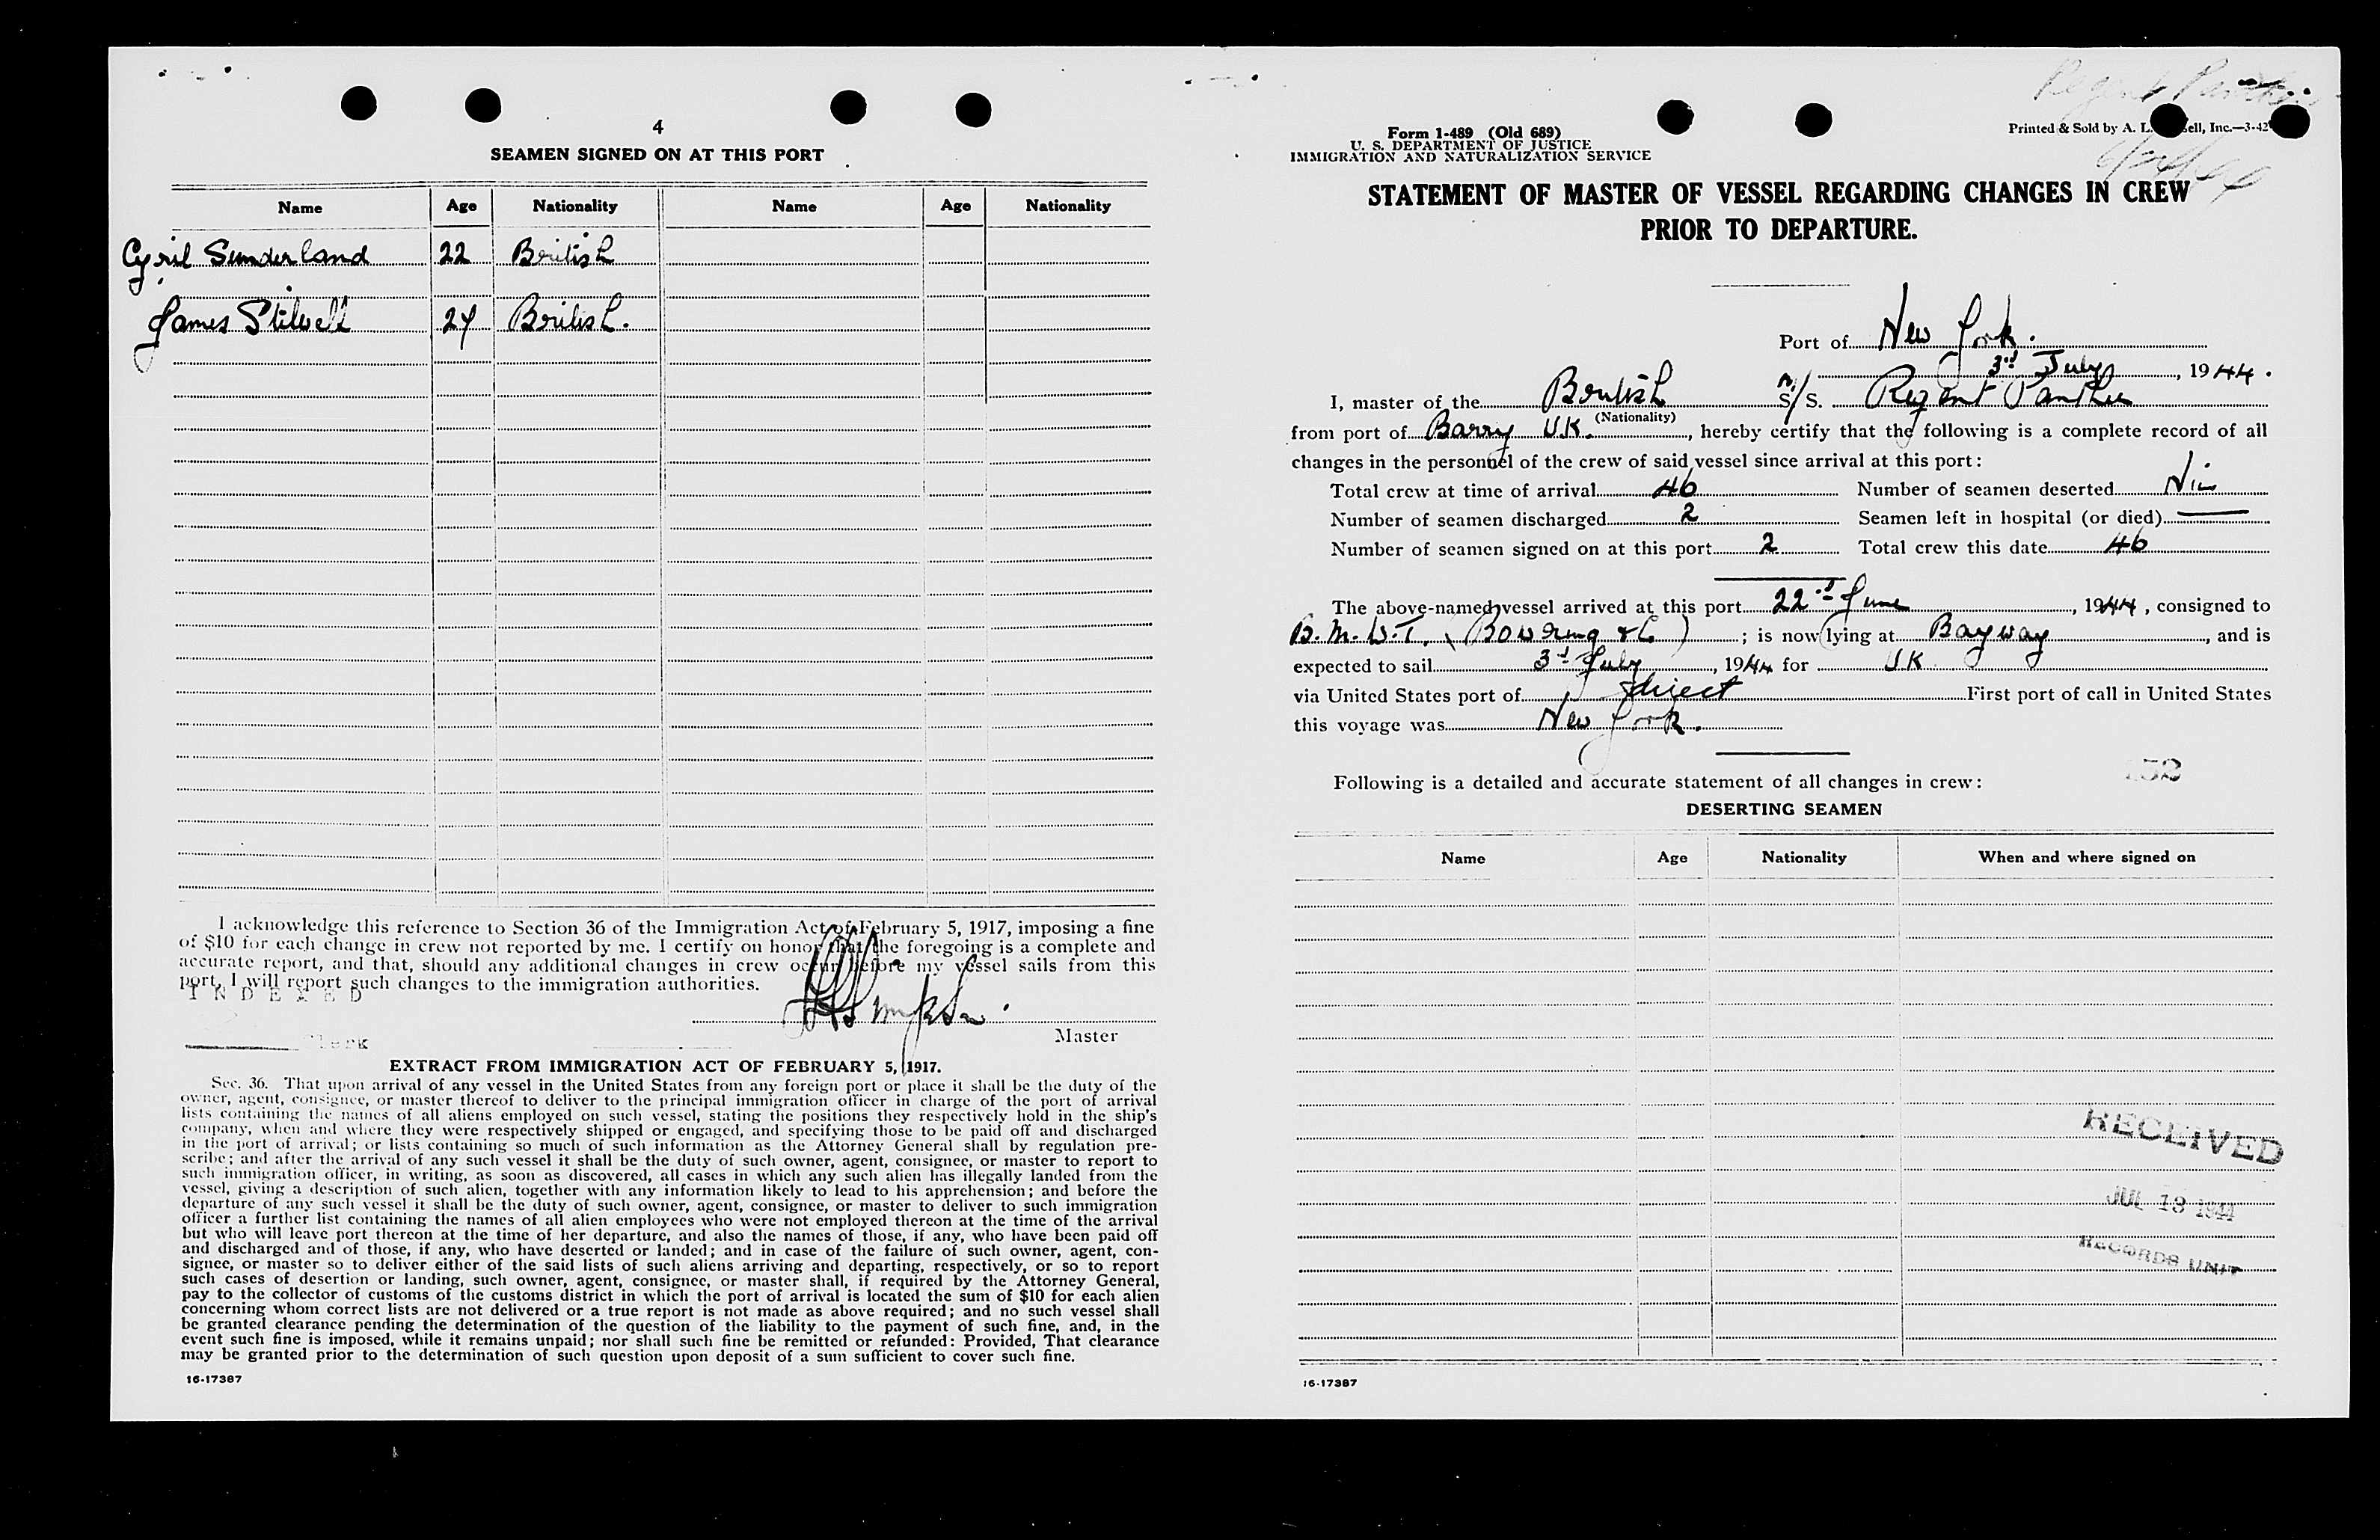 4
SEAMEN SIGNED ON AT THIS PORT
Name Age Nationality Name Age Nationality
Cyril Sunderland 22 British
James Stilwell 24 British.
I acknowledge this reference to Section 36 of the Immigration Act of February 5, 1917, imposing a fine
of $10 for each change in crew not reported by me. I certify on honor that the foregoing is a complete and
accurate report, and that, should any additional changes in crew occur before my vessel sails from this
port, I will report such changes to the immigration authorities.
INDEXED
Simpson.
Master
Clerk
EXTRACT FROM IMMIGRATION ACT OF FEBRUARY 5, 1917.
Sec. 36. That upon arrival of any vessel in the United States from any foreign port or place it shall be the duty of the
owner, agent, consignee, or master thereof to deliver to the principal immigration officer in charge of the port of arrival
lists containing the names of all aliens employed on such vessel, stating the positions they respectively hold in the ship's
company, when and where they were respectively shipped or engaged, and specifying those to be paid off and discharged
in the port of arrival; or lists containing so much of such information as the Attorney General shall by regulation pre-
scribe; and after the arrival of any such vessel it shall be the duty of such owner, agent, consignee, or master to report to
such immigration officer, in writing, as soon as discovered, all cases in which any such alien has illegally landed from the
vessel, giving a description of such alien, together with any information likely to lead to his apprehension; and before the
departure of any such vessel it shall be the duty of such owner, agent, consignee, or master to deliver to such immigration
officer a further list containing the names of all alien employees who were not employed thereon at the time of the arrival
but who will leave port thereon at the time of her departure, and also the names of those, if any, who have been paid off
and discharged and of those, if any, who have deserted or landed; and in case of the failure of such owner, agent, con-
signee, or master so to deliver either of the said lists of such aliens arriving and departing, respectively, or so to report
such cases of desertion or landing, such owner, agent, consignee, or master shall, if required by the Attorney General,
pay to the collector of customs of the customs district in which the port of arrival is located the sum of $10 for each alien
concerning whom correct lists are not delivered or a true report is not made as above required; and no such vessel shall
be granted clearance pending the determination of the question of the liability to the payment of such fine, and, in the
event such fine is imposed, while it remains unpaid; nor shall such fine be remitted or refunded: Provided, That clearance
may be granted prior to the determination of such question upon deposit of a sum sufficient to cover such fine.
16-17387
Regent Panther
Form 1-489 (Old 689)
U. S. DEPARTMENT OF JUSTICE
IMMIGRATION AND NATURALIZATION SERVICE
Printed & Sold by A. L. Inc.—3-42
STATEMENT OF MASTER OF VESSEL REGARDING CHANGES IN CREW
PRIOR TO DEPARTURE.
Port of New York.
3rd July, 1944.
I, master of the British S/S. Regent Panther
(Nationality)
from port of Barry U.K., hereby certify that the following is a complete record of all
changes in the personnel of the crew of said vessel since arrival at this port:
Total crew at time of arrival 46 Number of seamen deserted Nil
Number of seamen discharged 2 Seamen left in hospital (or died) —
Number of seamen signed on at this port 2 Total crew this date 46
The above-named vessel arrived at this port 22nd June, 1944, consigned to
B.M.W.T. (Bowring & Co); is now lying at Bayway, and is
expected to sail 3rd July, 1944 for UK
via United States port of direct First port of call in United States
this voyage was New York.
Following is a detailed and accurate statement of all changes in crew:
DESERTING SEAMEN
Name Age Nationality When and where signed on
RECEIVED
JUL 13 1944
RECORDS UNIT
16-17387